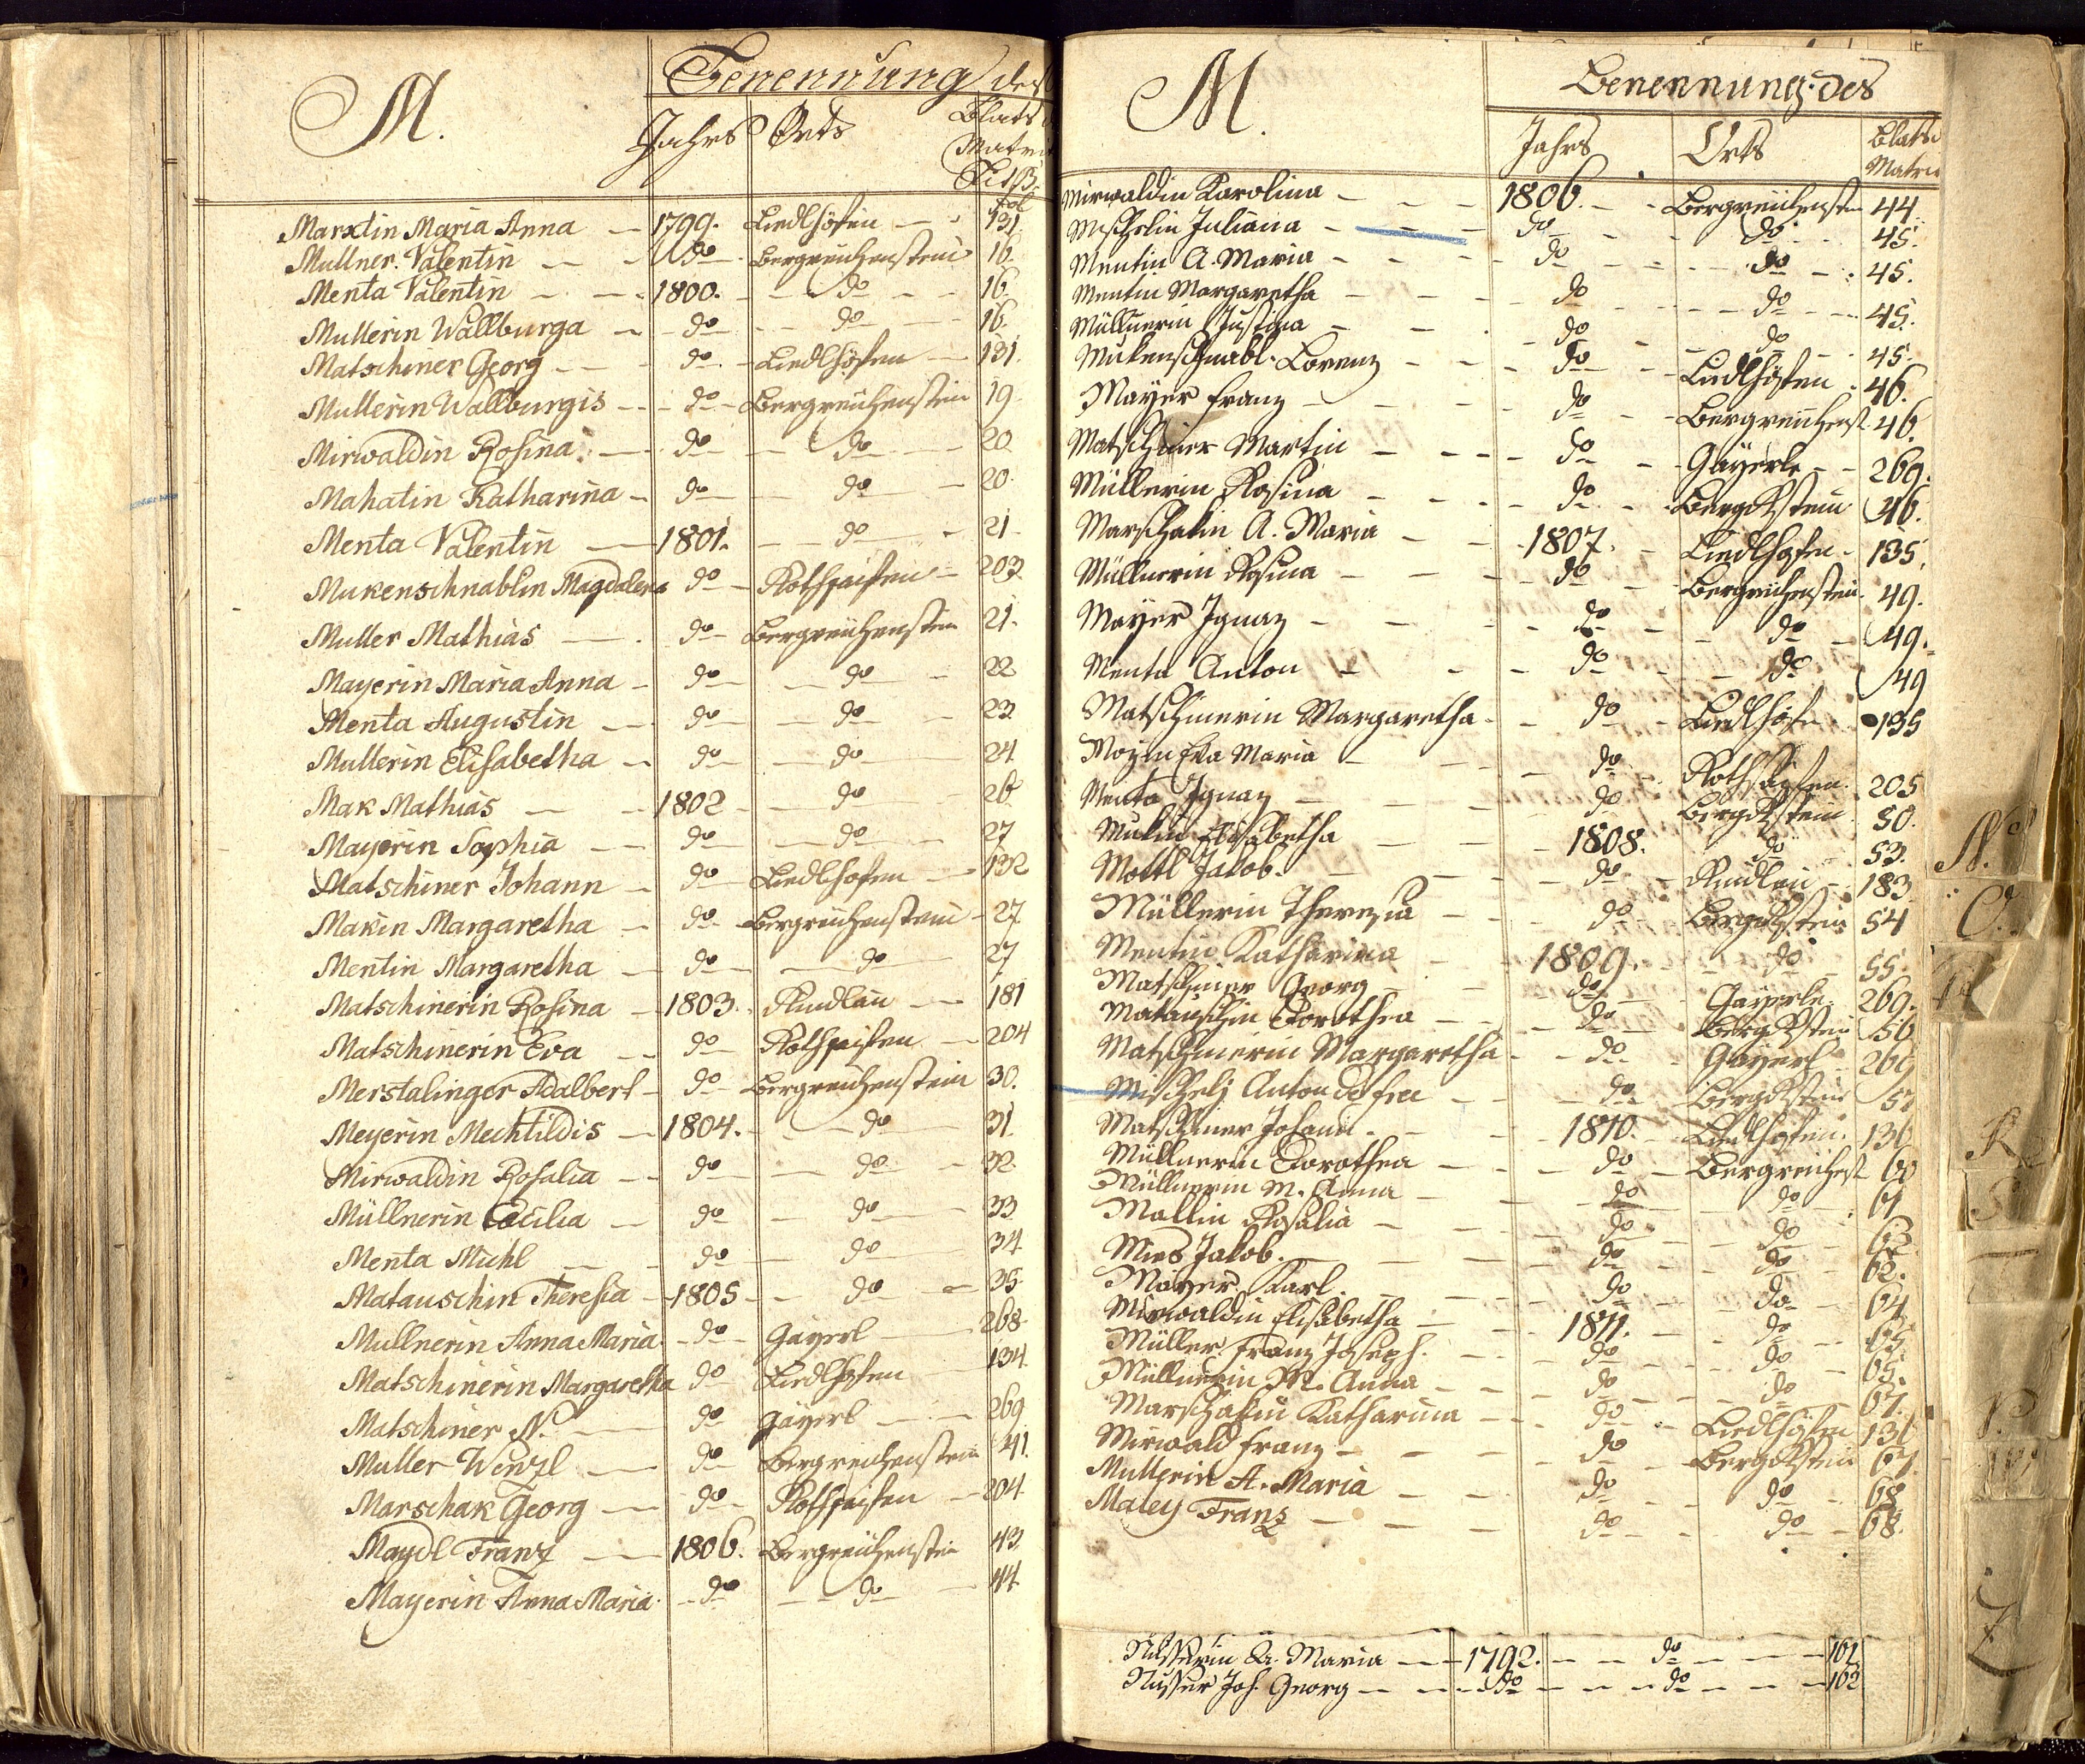 M. Benennung des
Jahrs Orts Blats
Matri
Fol
Marxtin Maria Anna 1799. Liedlhöfen 131
Mullner Valentin do Bergreichenstein 16.
Menta Valentin 1800. do 16
Mullerin Wallburga do do 16.
Matschiner Georg do Liedlhöfen 131.
Mullerin Wallburgis do Bergreichenstein 19
Mirwaldin Rosina do do 20
Mahatin Katharina do do 20.
Menta Valentin 1801. do 21
Mukenschnablin Magdalena do Rothsaifen 203
Muller Mathias do Bergreichenstein 21.
Mayerin Maria Anna do do 22
Menta Augustin do do 23
Mullerin Elisabetha do do 24
Mak Mathias 1802 do 26
Mayerin Sophia do do 27
Matschiner Johann do Liedlhofen 132
Makin Margaretha do Bergreichenstein 27.
Mentin Margaretha do do 27
Matschinerin Rosina 1803. Rindlau 181
Matschinerin Eva do Rothsaifen 204
Merstalinger Adalbert do Bergreichenstein 30.
Meyerin Mechtildis 1804. do 31.
Mirwaldin Rosalia do do 32.
Müllnerin Cäcilia do do 33
Menta Michl do do 34
Matauschin Theresia 1805 do 35
Mullnerin Anna Maria do Gayerl 268
Matschinerin Margaretha do Liedlhofen 134
Matschiner N. do Gayerl 269
Muller Wenzl do Bergreichenstein 41.
Marschak Georg do Rothsaifen 204
Maydl Franz 1806. Bergreichenstein 43.
Mayerin Anna Maria do do 44
M. Benennung des
Jahrs Orts Blats
Matri
Mirwaldin Karolina 1806. Bergreichenstein 44.
Juliana do do 45.
Mentin A. Maria do do 45.
Mentin Margaretha do do 45.
Müllnerin Justina do do 45.
Mukenschnabl Lorenz do Liedlhöfen 46.
Mayer Franz do Bergreichenst 46.
Matschiner Martin do Gayerle 269.
Müllerin Rosina do BergRstein 46.
Marschakin A. Maria 1807. Liedlhofen 135.
Müllnerin Rosina do Bergreichenstein 49.
Mayer Ignaz do do 49.
Menta Anton do do 49
Matschinerin Margaretha do Liedlhöfen 135
Eva Maria do Rothsaifen 205
Menta Ignaz do BergRstein 50.
Makin Elisabetha 1808. do 53.
Mottl Jakob do Rindlau 183
Müllerin Theresia do BergRstein 54
Mentin Katharina 1809. do 55.
Matschiner Georg do Gayerle 269.
Matauschin Dorothea do BergRstein 56
Matschinerin Margaretha do Gayerl 269
Anton do BergRstein 57
Matschiner Johann 1810. Liedlhöfen 136
Müllnerin Dorothea do Bergreichenst 60
Müllnerin M. Anna do do 61
Mallin Rosalia do do 62
Mies Jakob do do 62.
Mayer Karl do do 64
Mirwaldin Elisabetha 1811. do 65
Müller Franz Joseph do do 65.
Müllnerin M. Anna do do 67.
Marschakin Katharina do Liedlhöfen 136
Mirwald Franz do BergRstein 67
Mullerin A. Maria do do 68
Maley Franz do do 68.
Nusserin A. Maria 1792. do 161
Nusser Joh. Georg do do 162
N.
O.
R
Z